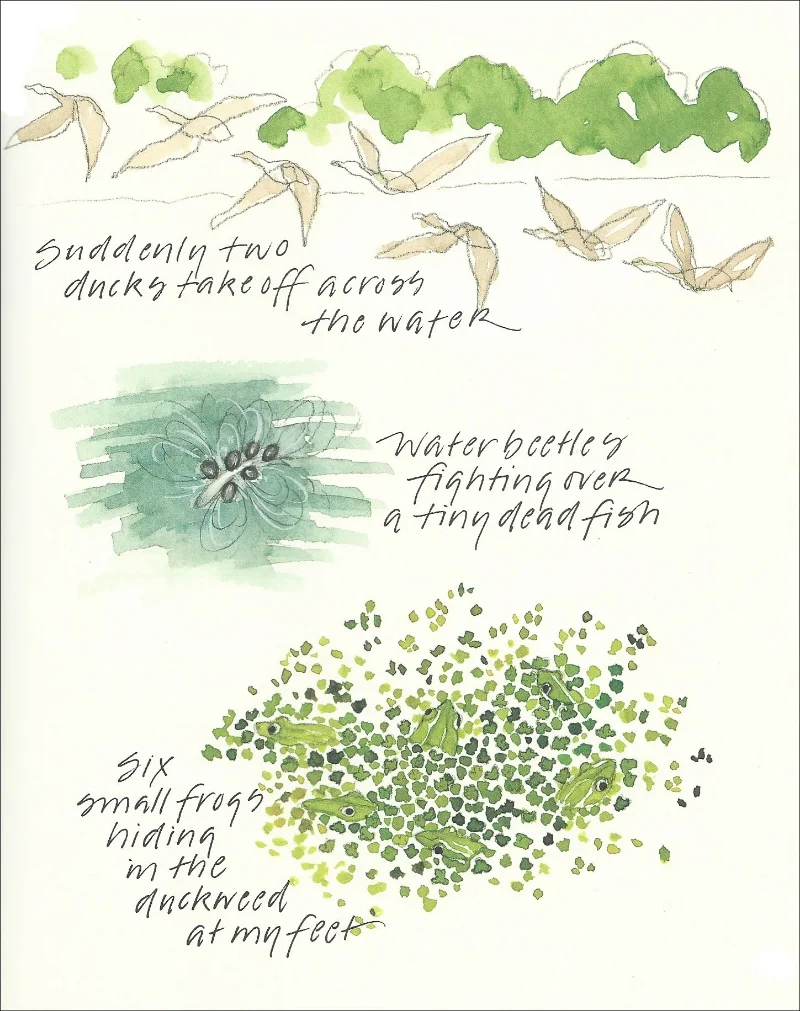 Suddenly two
ducks take off across
the water
Water beetles
fighting over
a tiny dead fish
Six
small frogs
hiding
in the
duckweed
at my feet